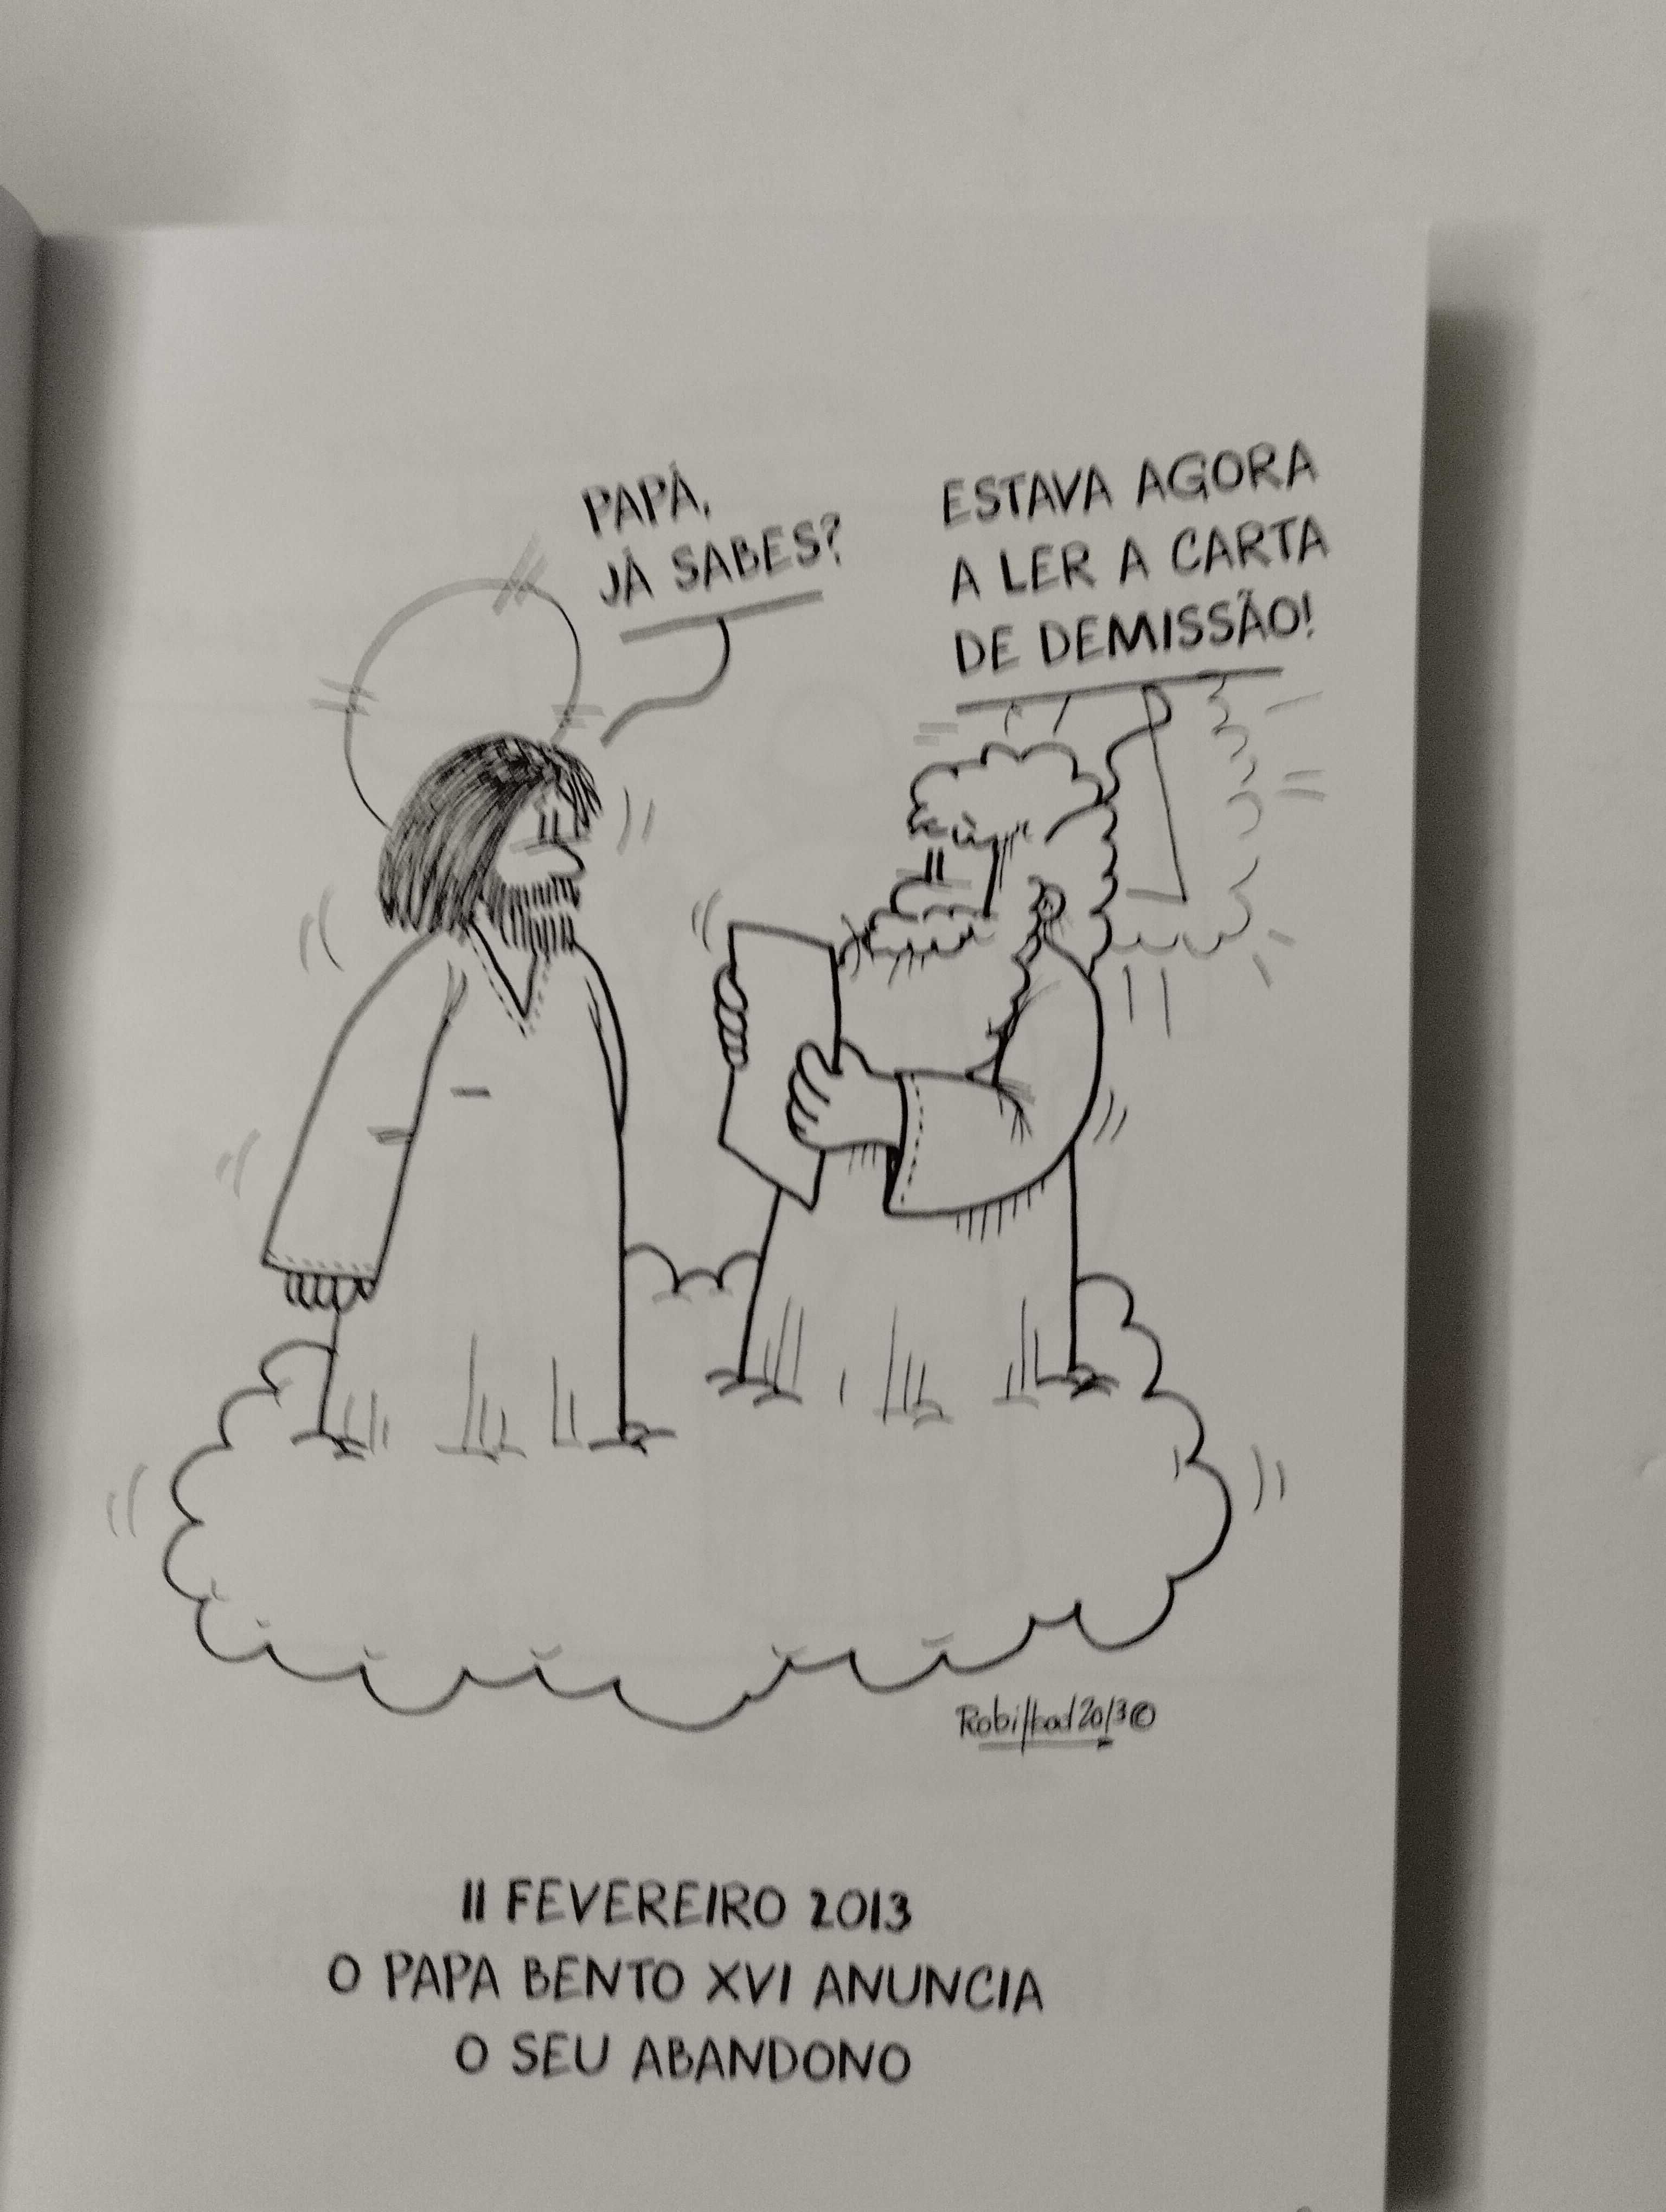 PAPÁ,
JÁ SABES?
ESTAVA AGORA
A LER A CARTA
DE DEMISSÃO!
2013©
11 FEVEREIRO 2013
O PAPA BENTO XVI ANUNCIA
O SEU ABANDONO